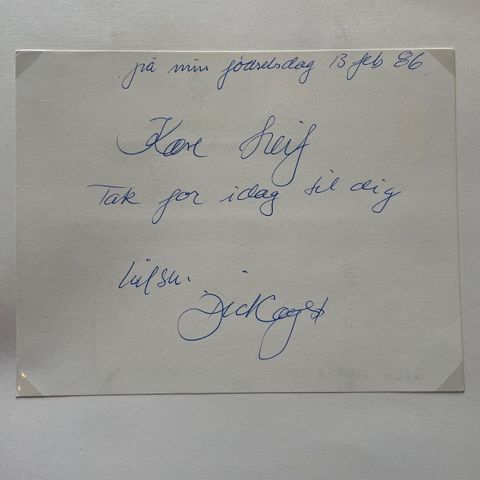 på min fødselsdag 13 feb 86.
Kære Leif
Tak for idag til dig
hilsn.